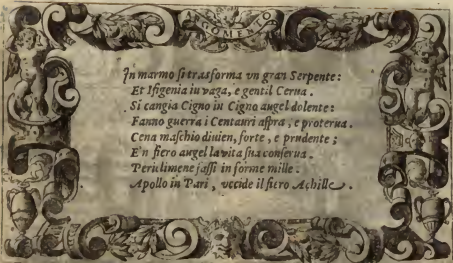 GOMENTO
In marmo si trasforma vn gran Serpente:
Et Ifigenia in vaga, e gentil Cerua.
Si cangia Cigno in Cigno augel dolente:
Fanno guerra i Centauri aspra, e proterua.
Cena maschio diuien, forte, e prudente;
E'n fiero augel la vita sua conserua.
Periclimene fassi in forme mille.
Apollo in Pari, vccide il fiero Achille.